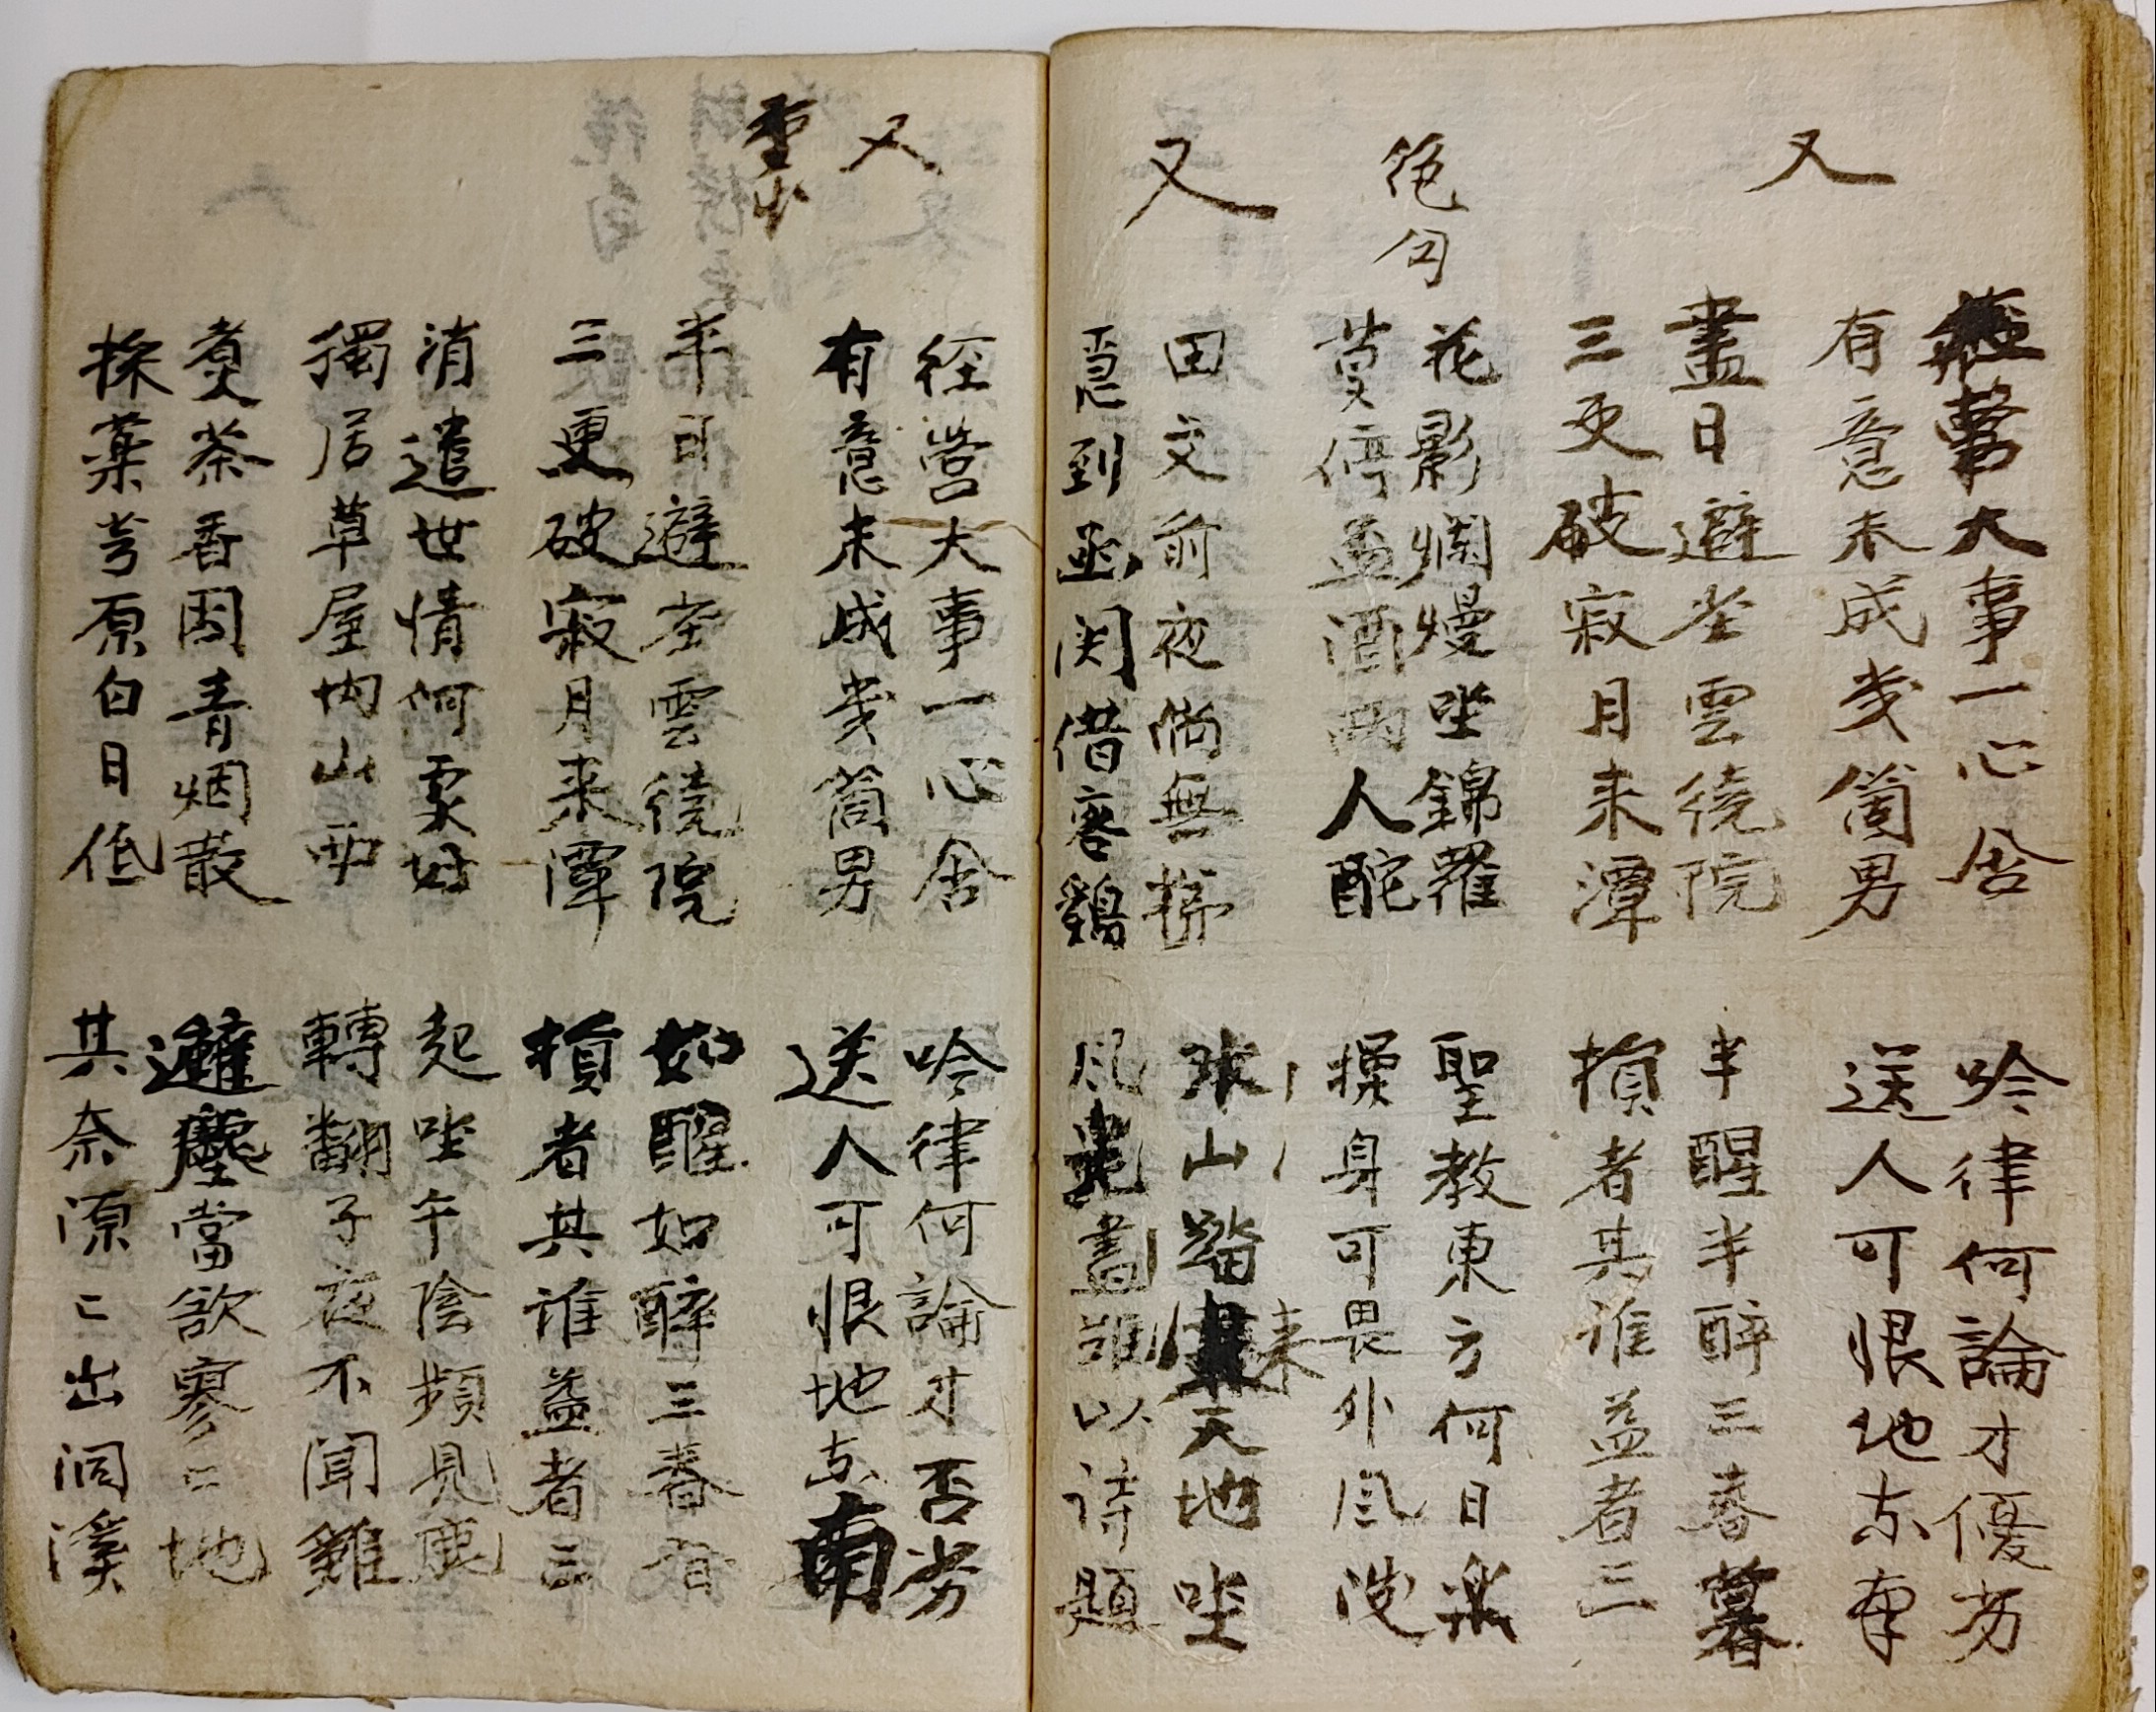 又
經營大事一心舍 吟律何論才優劣
有意未成幾箇男 送人可恨地東南
盡日避喧雲繞院 半醒半醉三春暮
三更破寂月来潭 損者其誰益者三
絶句
花影爛熳坐錦羅 聖教東方何日
停盃酒两人酡 操身可畏外風
又
田文前夜尙無 山踏来天地坐
到函関借客鷄 風畫以詩題
又
重出
經營大事一心舍 吟律何論才否劣
有意未成幾箇男 送人可恨地東南
半日避喧雲繞院 如醒如醉三春
三更破寂月来潭 損者其誰益者三
消遣世情何處好 起坐午陰頻見鹿
獨居草屋内山西 轉翻子夜不聞雞
煮茶香因青烟散 避塵當欲寥〻地
採藥原白日低 其奈源〻出洞溪